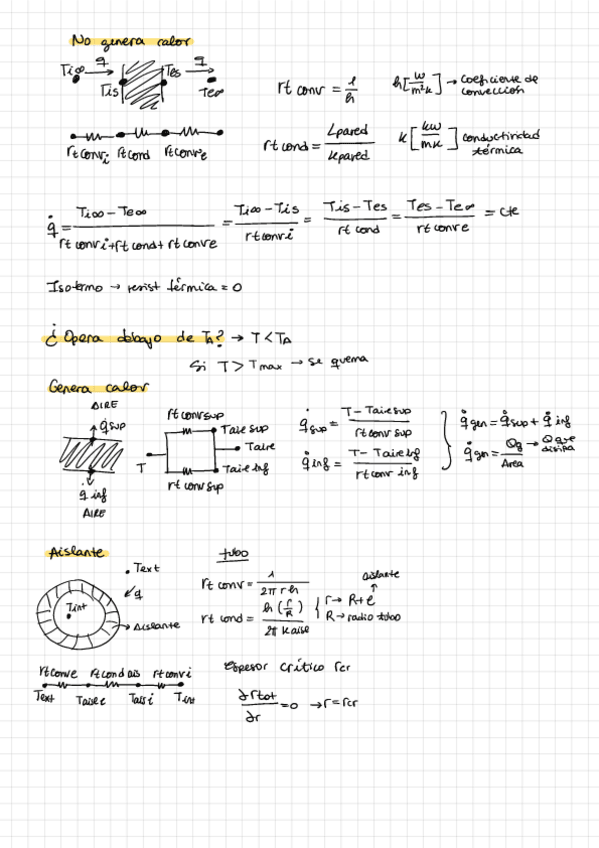 No genera calor
Ti∞ q Tis Tes q Te∞
rt conv = 1/h h[w/m²k] → coeficiente de convección
rt convi rt cond rt conve
rt cond = Lpared/kpared k[kw/mk] conductividad térmica
q̇ = (Ti∞ - Te∞)/(rt convi + rt cond + rt conve) = (Ti∞ - Tis)/rt convi = (Tis - Tes)/rt cond = (Tes - Te∞)/rt conve = cte
Isotermo → resist térmica = 0
¿Opera debajo de TA? → T < TA
Si T > Tmax → se quema
Genera calor
AIRE
q̇sup
q̇ inf
AIRE
rt conv sup
T Taire sup Taire Taire inf
rt conv sup
q̇sup = (T - Taire sup)/rt conv sup
q̇inf = (T - Taire inf)/rt conv inf
q̇gen = q̇sup + q̇inf
q̇gen = Qg/Area → Q que disipa
Aislante
Text
q
Tint
Aislante
tubo
rt conv = 1/2π r h
rt cond = ln(r/R)/2π kaisl
aislante
r → R + e
R → radio tubo
rt conve rt cond ais rt convi
Text Taise Taisi Tint
Espesor crítico rcr
∂rtot/∂r = 0 → r = rcr